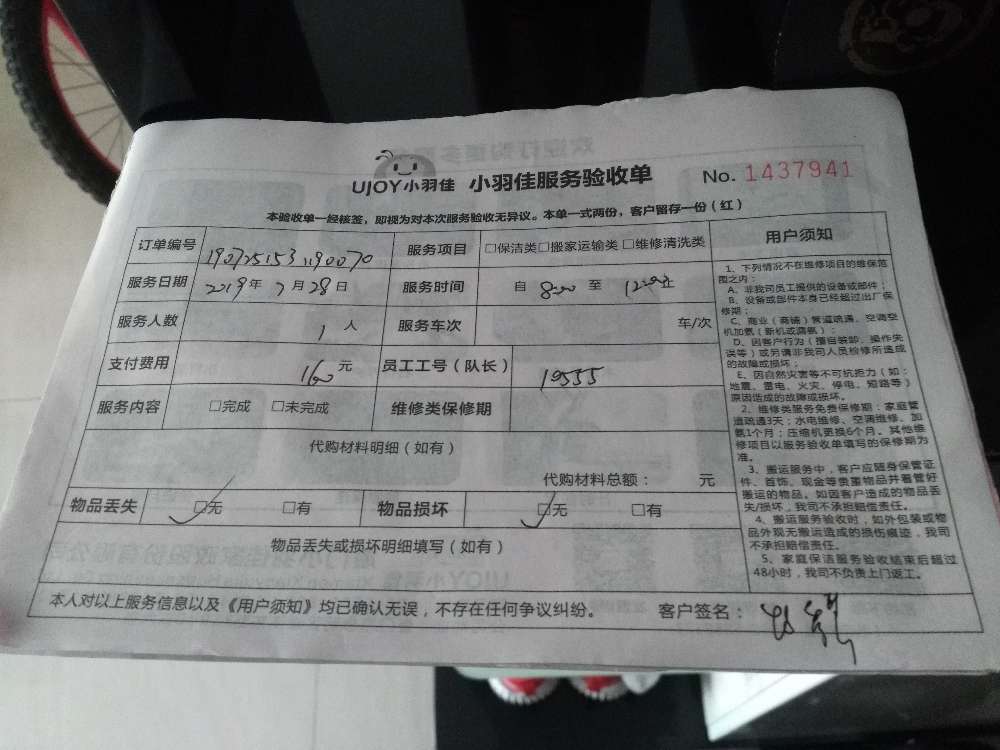 UJOY小羽佳 小羽佳服务验收单 No. 1437941
本验收单一经核签，即视为对本次服务验收无异议。本单一式两份，客户留存一份（红）
订单编号 1907251531190070 服务项目 □保洁类□搬家运输类 □维修清洗类
服务日期 2019年 7月28日 服务时间 自 8:00 至 12:00止
服务人数 1人 服务车次 车/次
支付费用 160元 员工工号（队长） 19555
服务内容 □完成 □未完成 维修类保修期
代购材料明细（如有）
代购材料总额： 元
物品丢失 □无 □有 物品损坏 □无 □有
物品丢失或损坏明细填写（如有）
用户须知
1、下列情况不在维修项目的维保范
围之内：
A、非我司员工提供的设备或部件；
B、设备或部件本身已经超过出厂保
修期；
C、商业（商铺）管道疏通、空调空
机加氨（新机或漏氨）；
D、因客户行为（擅自装卸、操作失
误等）或另请非我司人员检修所造成
的故障或损坏；
E、因自然灾害等不可抗力（如：
地震、雷电、火灾、停电、短路等）
原因造成的故障或损坏。
2、维修类服务免费保修期：家庭管
道疏通3天；水电维修、空调维修、加
氨1个月；压缩机更换6个月。其他维
修项目以服务验收单填写的保修期为
准。
3、搬运服务中，客户应随身保管证
件、首饰、现金等贵重物品并看管好
搬运的物品。如因客户造成的物品丢
失/损坏，我司不承担赔偿责任。
4、搬运服务验收时，如外包装或物
品外观无搬运造成的损伤痕迹，我司
不承担赔偿责任。
5、家庭保洁服务验收结束后超过
48小时，我司不负责上门返工。
本人对以上服务信息以及《用户须知》均已确认无误，不存在任何争议纠纷。 客户签名：